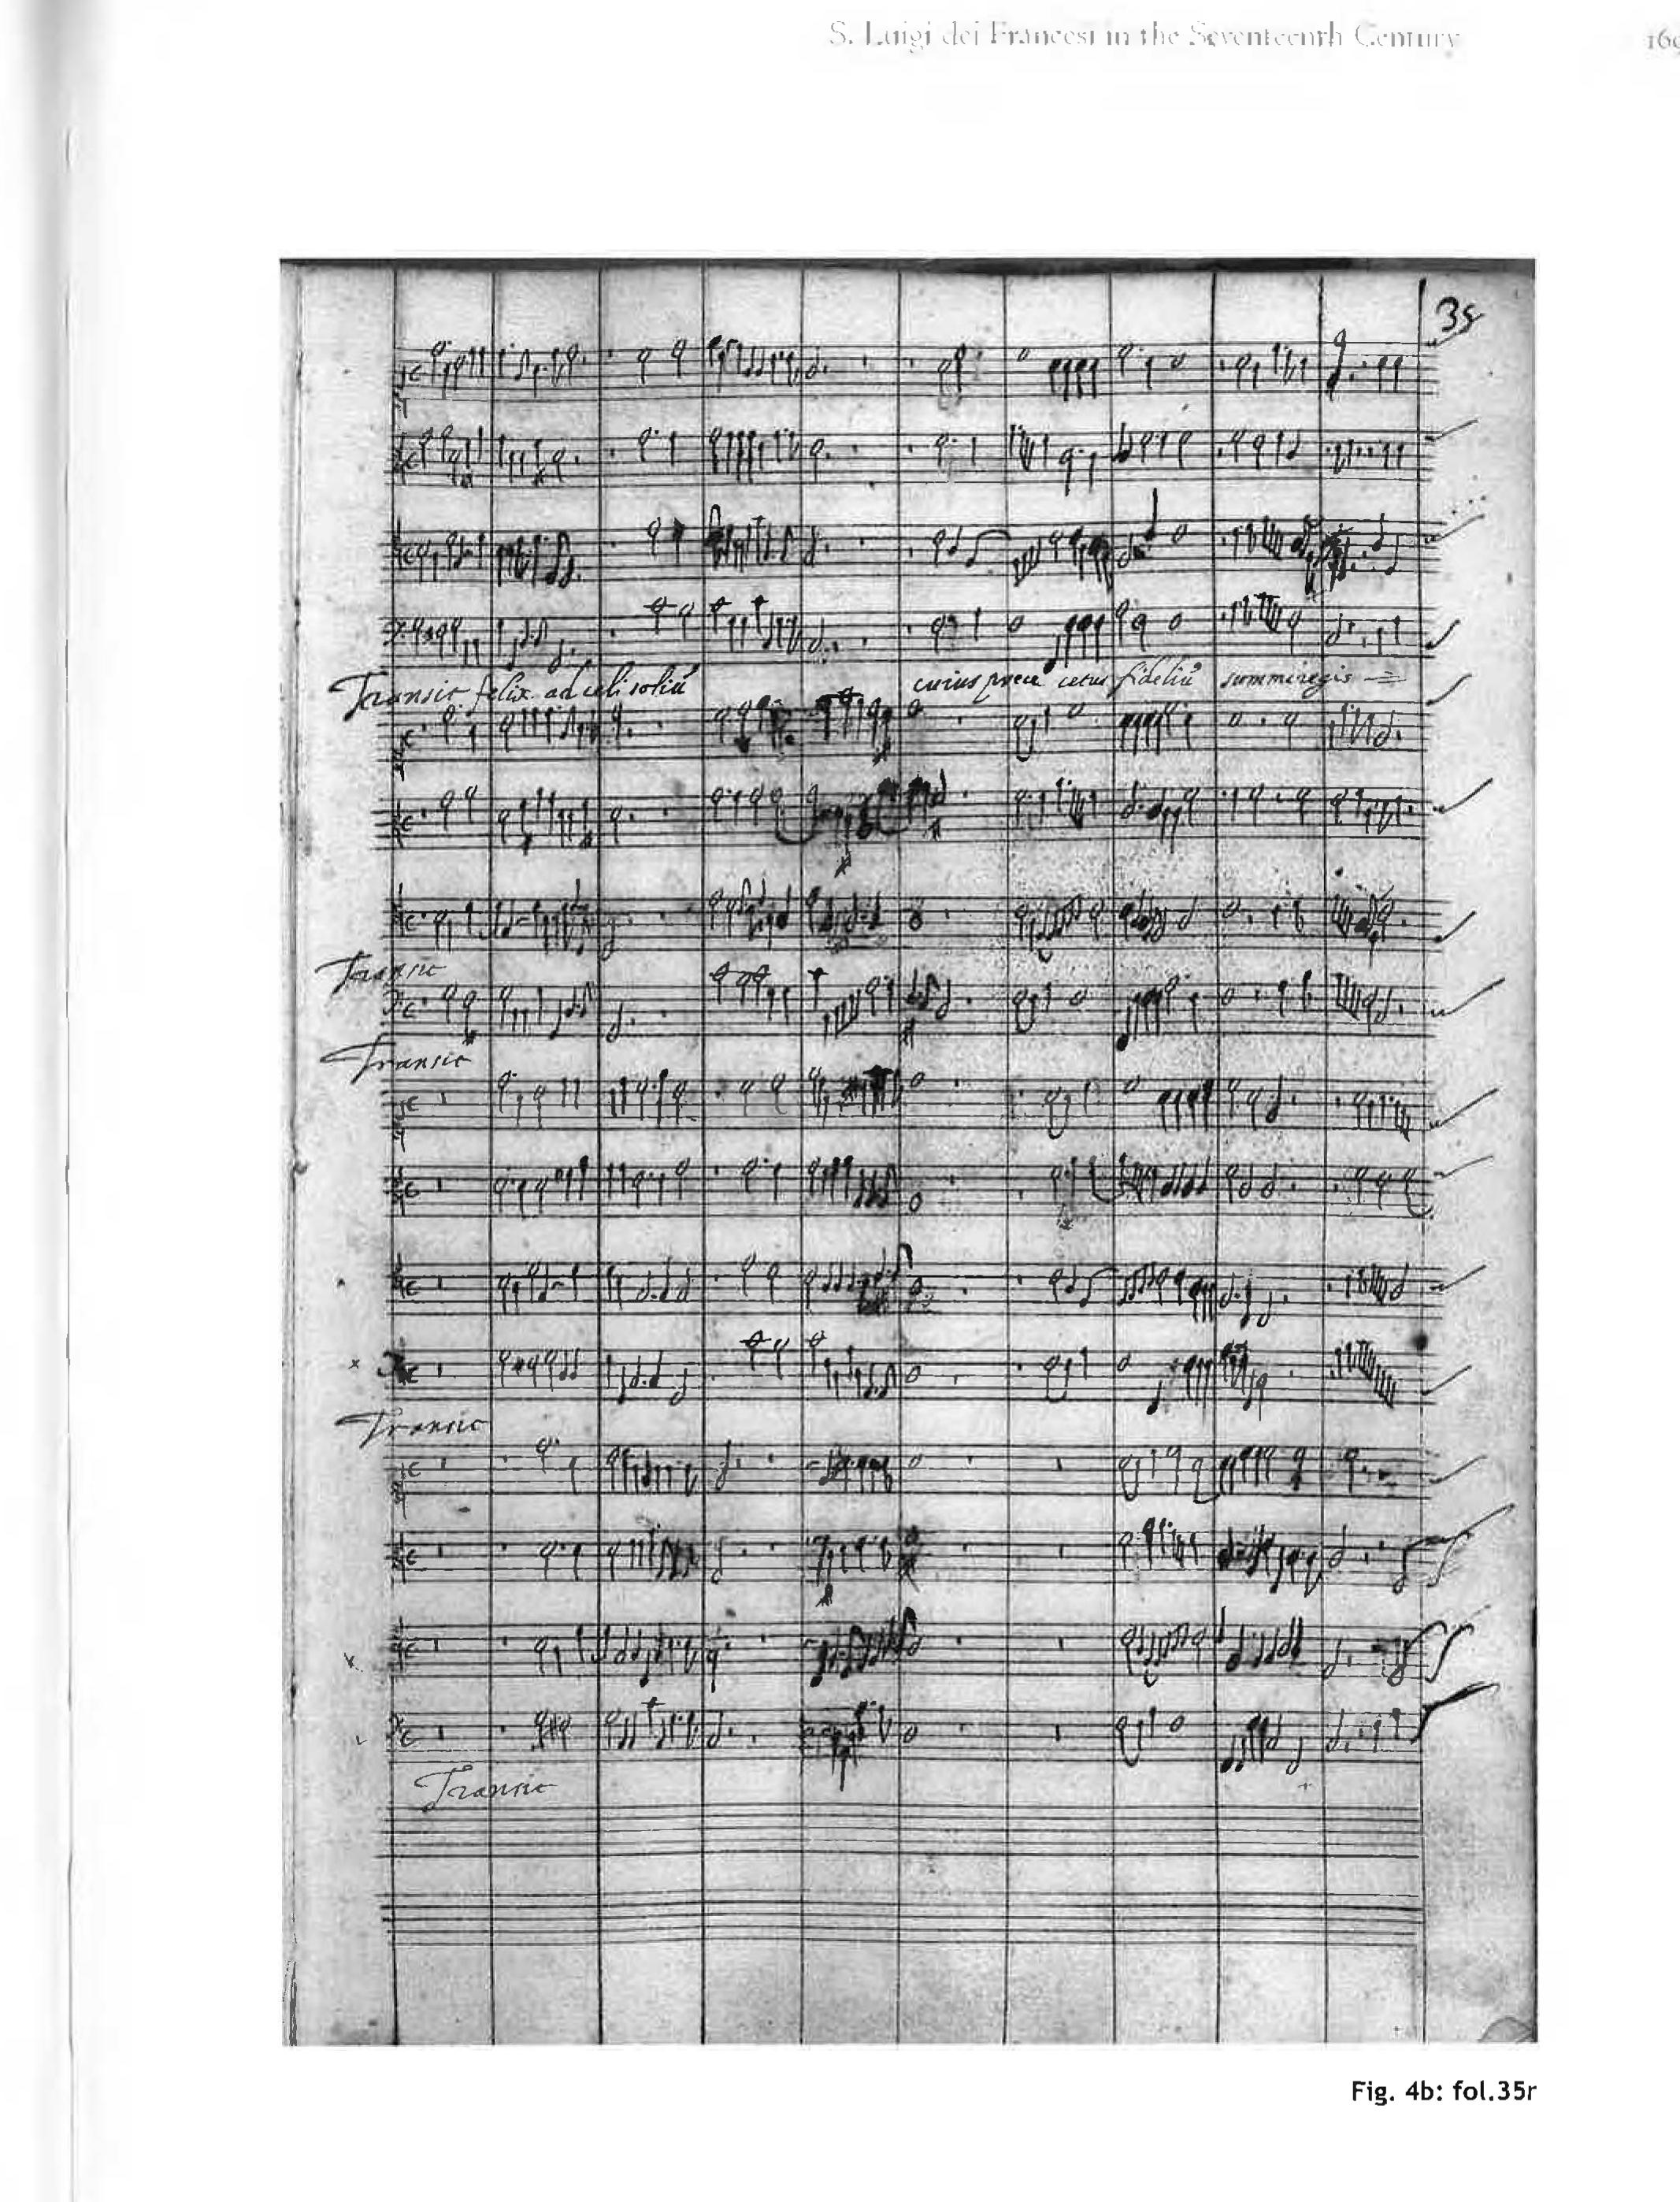 S. Luigi dei Francesi in the Seventeenth Century 169
35
Transit felix ad celi soliũ cuius prece cetus fideliũ summi regis
Transit
Transit
Transit
Transit
Fig. 4b: fol.35r